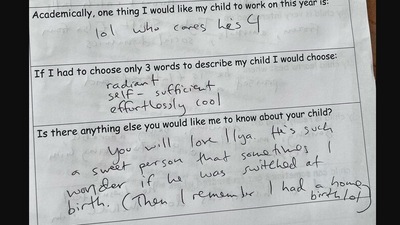 Academically, one thing I would like my child to work on this year is:
lol who cares he's 4
If I had to choose only 3 words to describe my child I would choose:
radiant
self-sufficient
effortlessly cool
Is there anything else you would like me to know about your child?
You will love Ilya. He's such
a sweet person that sometimes I
wonder if he was switched at
birth. (Then I remember I had a home
birth lol)